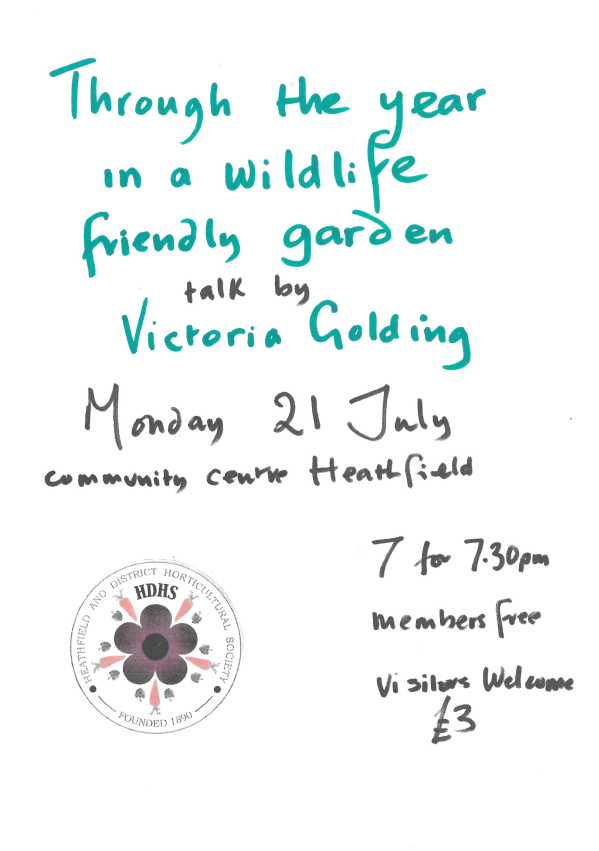 Through the year
in a wildlife
friendly garden
talk by
Victoria Golding
Monday 21 July
community centre Heathfield
7 for 7.30pm
members free
Visitors Welcome
£3
HEATHFIELD AND DISTRICT HORTICULTURAL SOCIETY
HDHS
FOUNDED 1890